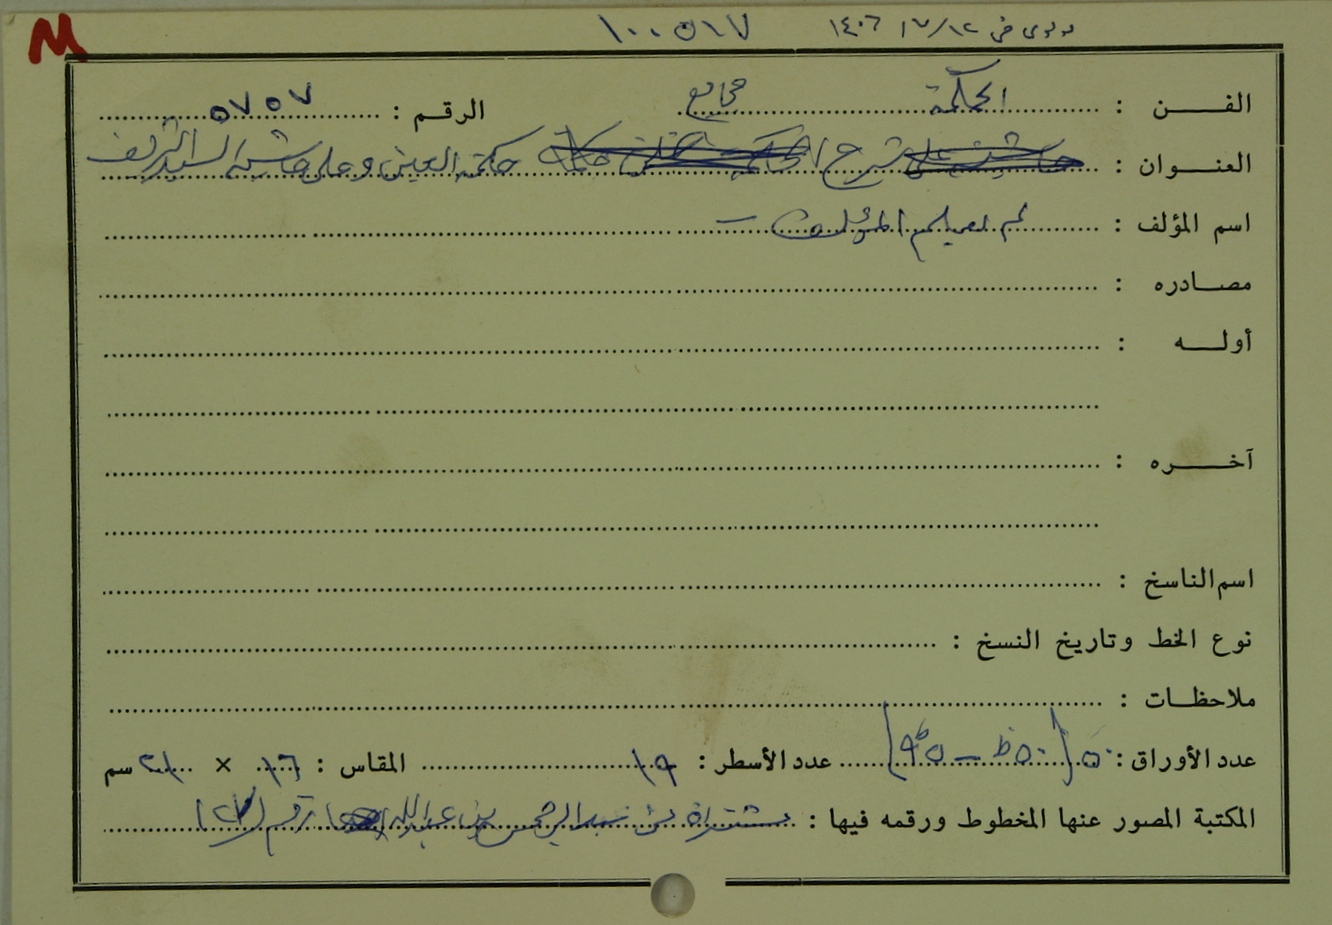 M
١٠٠٥١٧ ١٤٠٦/١٢/١٧
الفــن : الحكمة مجاميع الرقم : ٥٧٥٧
العنــوان : حاشية على شرح حكمة العين وعلى حاشية السيد الشريف
اسم المؤلف : لم يعلم المؤلف
مصــادره :
أولــه :
آخــره :
اسم الناسخ :
نوع الخط وتاريخ النسخ :
ملاحظــات :
عدد الأوراق : عدد الأسطر : ١٩ المقاس : ١٦ × ٢١ سم
المكتبة المصور عنها المخطوط ورقمه فيها : عبد الرحمن بن عبدالله رقم